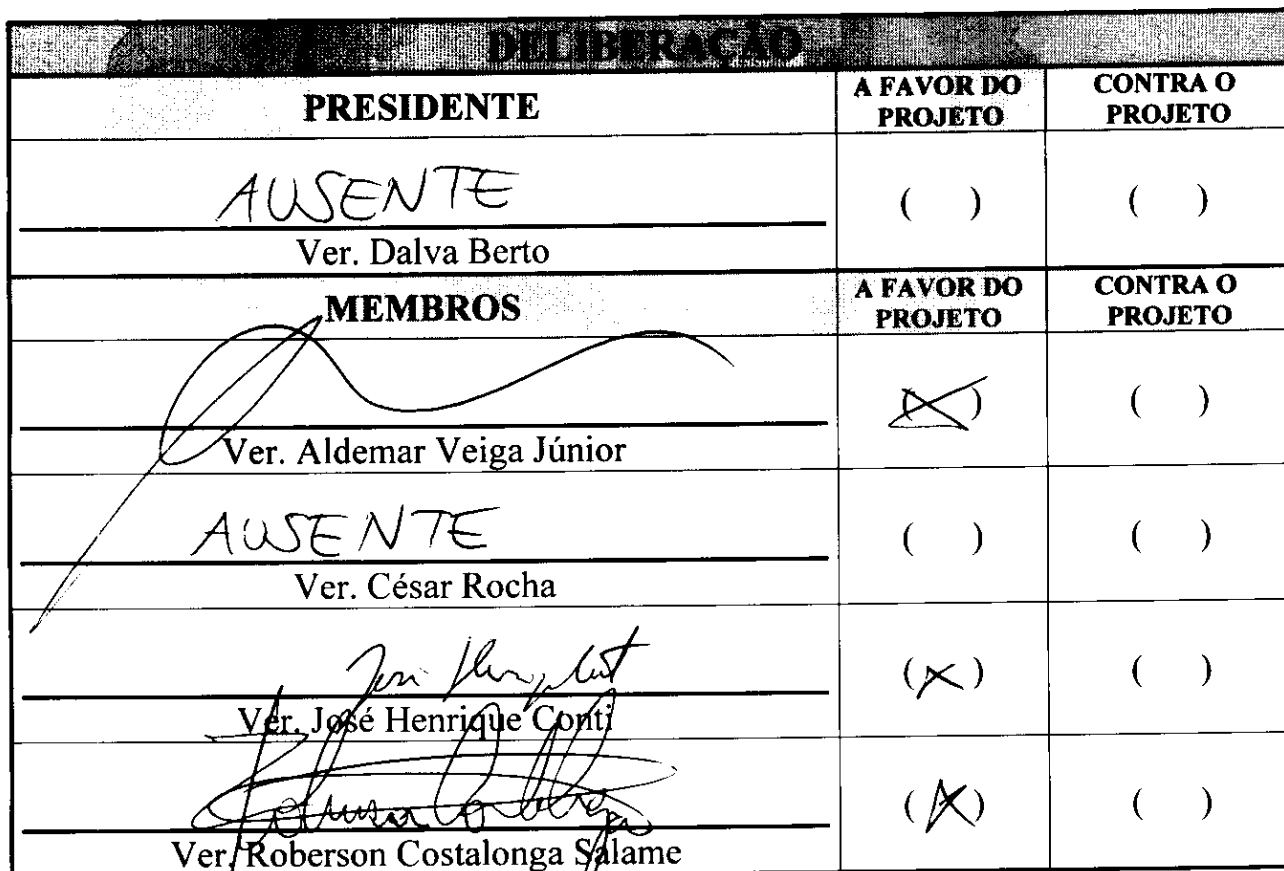 DELIBERAÇÃO
PRESIDENTE A FAVOR DO PROJETO CONTRA O PROJETO
AUSENTE ( ) ( )
Ver. Dalva Berto
MEMBROS A FAVOR DO PROJETO CONTRA O PROJETO
(X) ( )
Ver. Aldemar Veiga Júnior
AUSENTE ( ) ( )
Ver. César Rocha
(X) ( )
Ver. José Henrique Conti
(X) ( )
Ver. Roberson Costalonga Salame